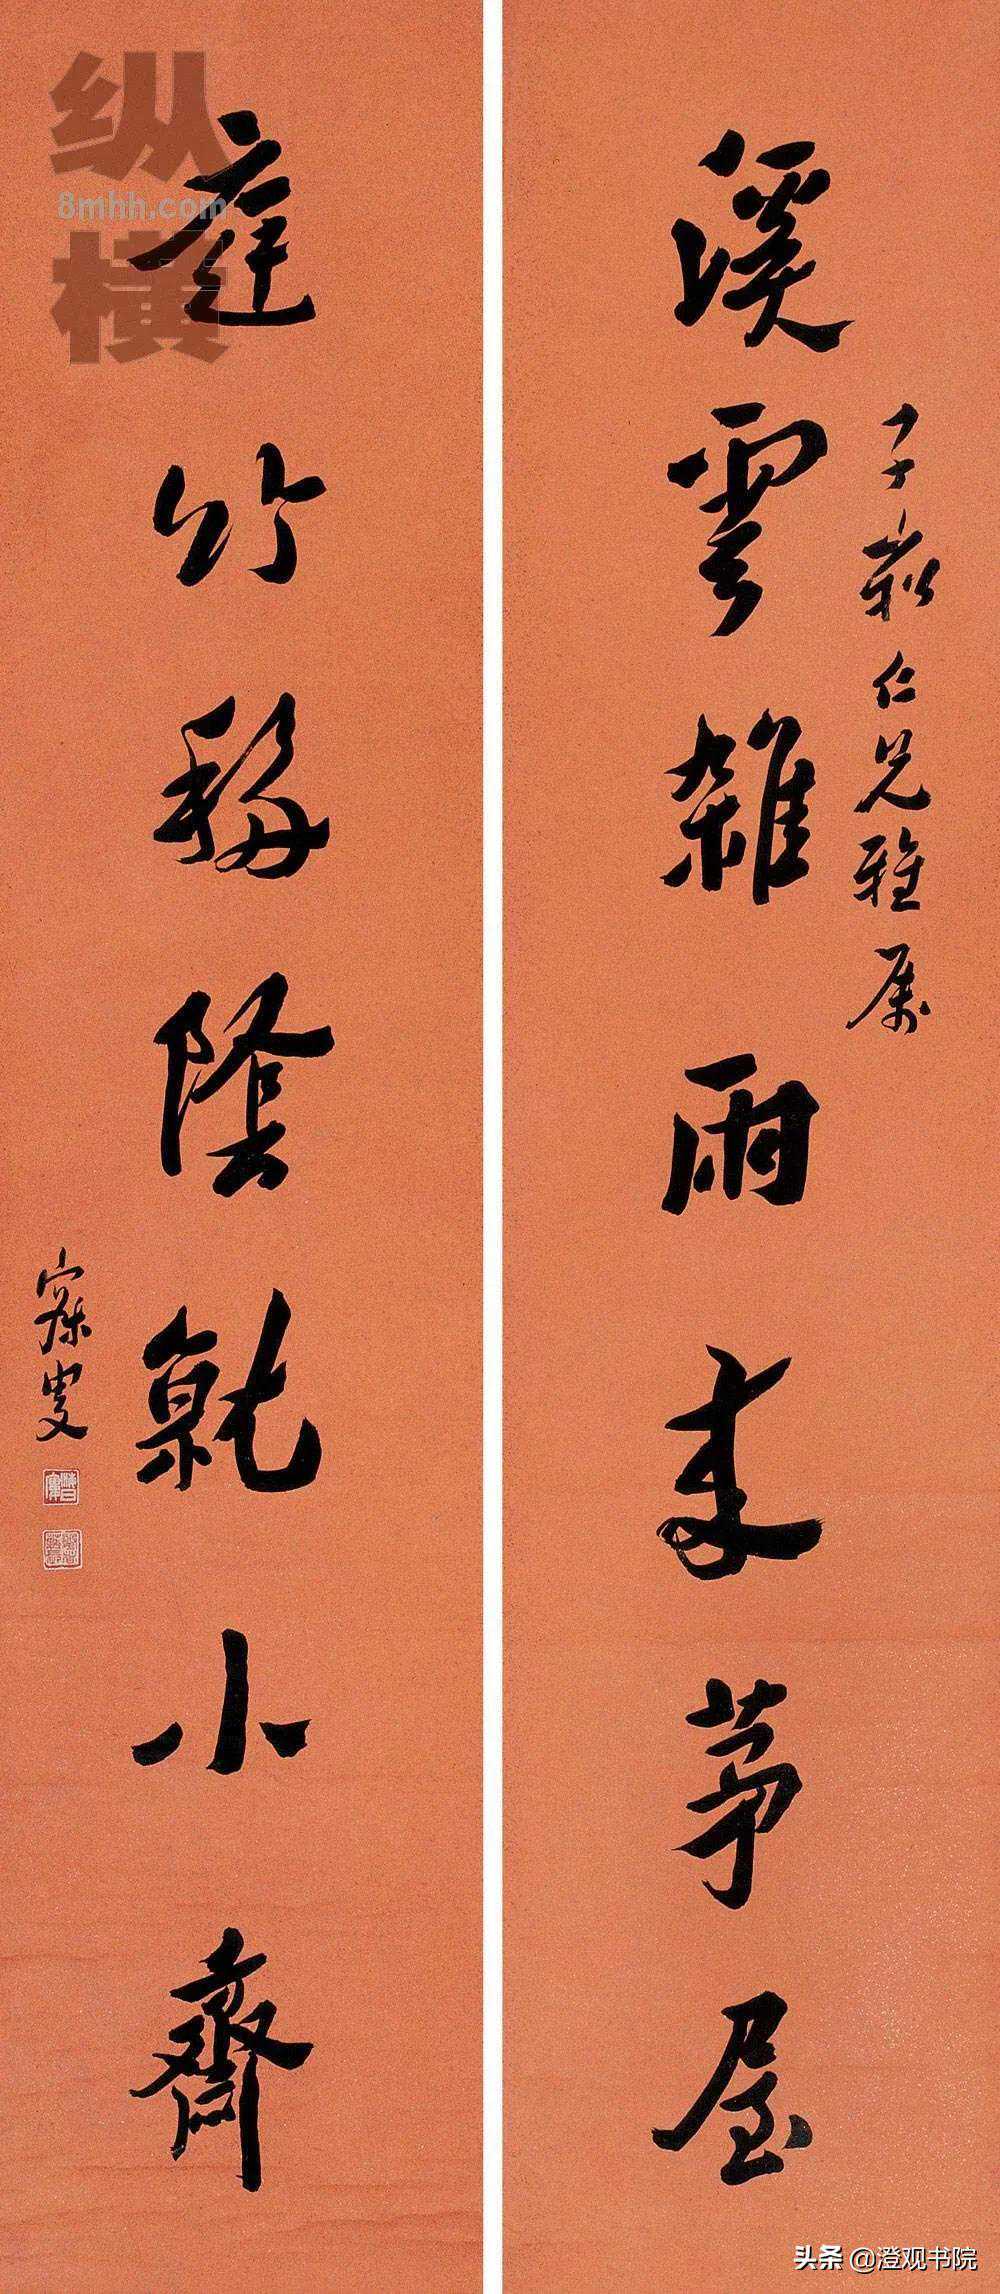 溪雲雜雨來茅屋
子菽仁兄雅属
庭竹移陰就小齋
寐叟
纵横
8mhh.com
头条 @澄观书院